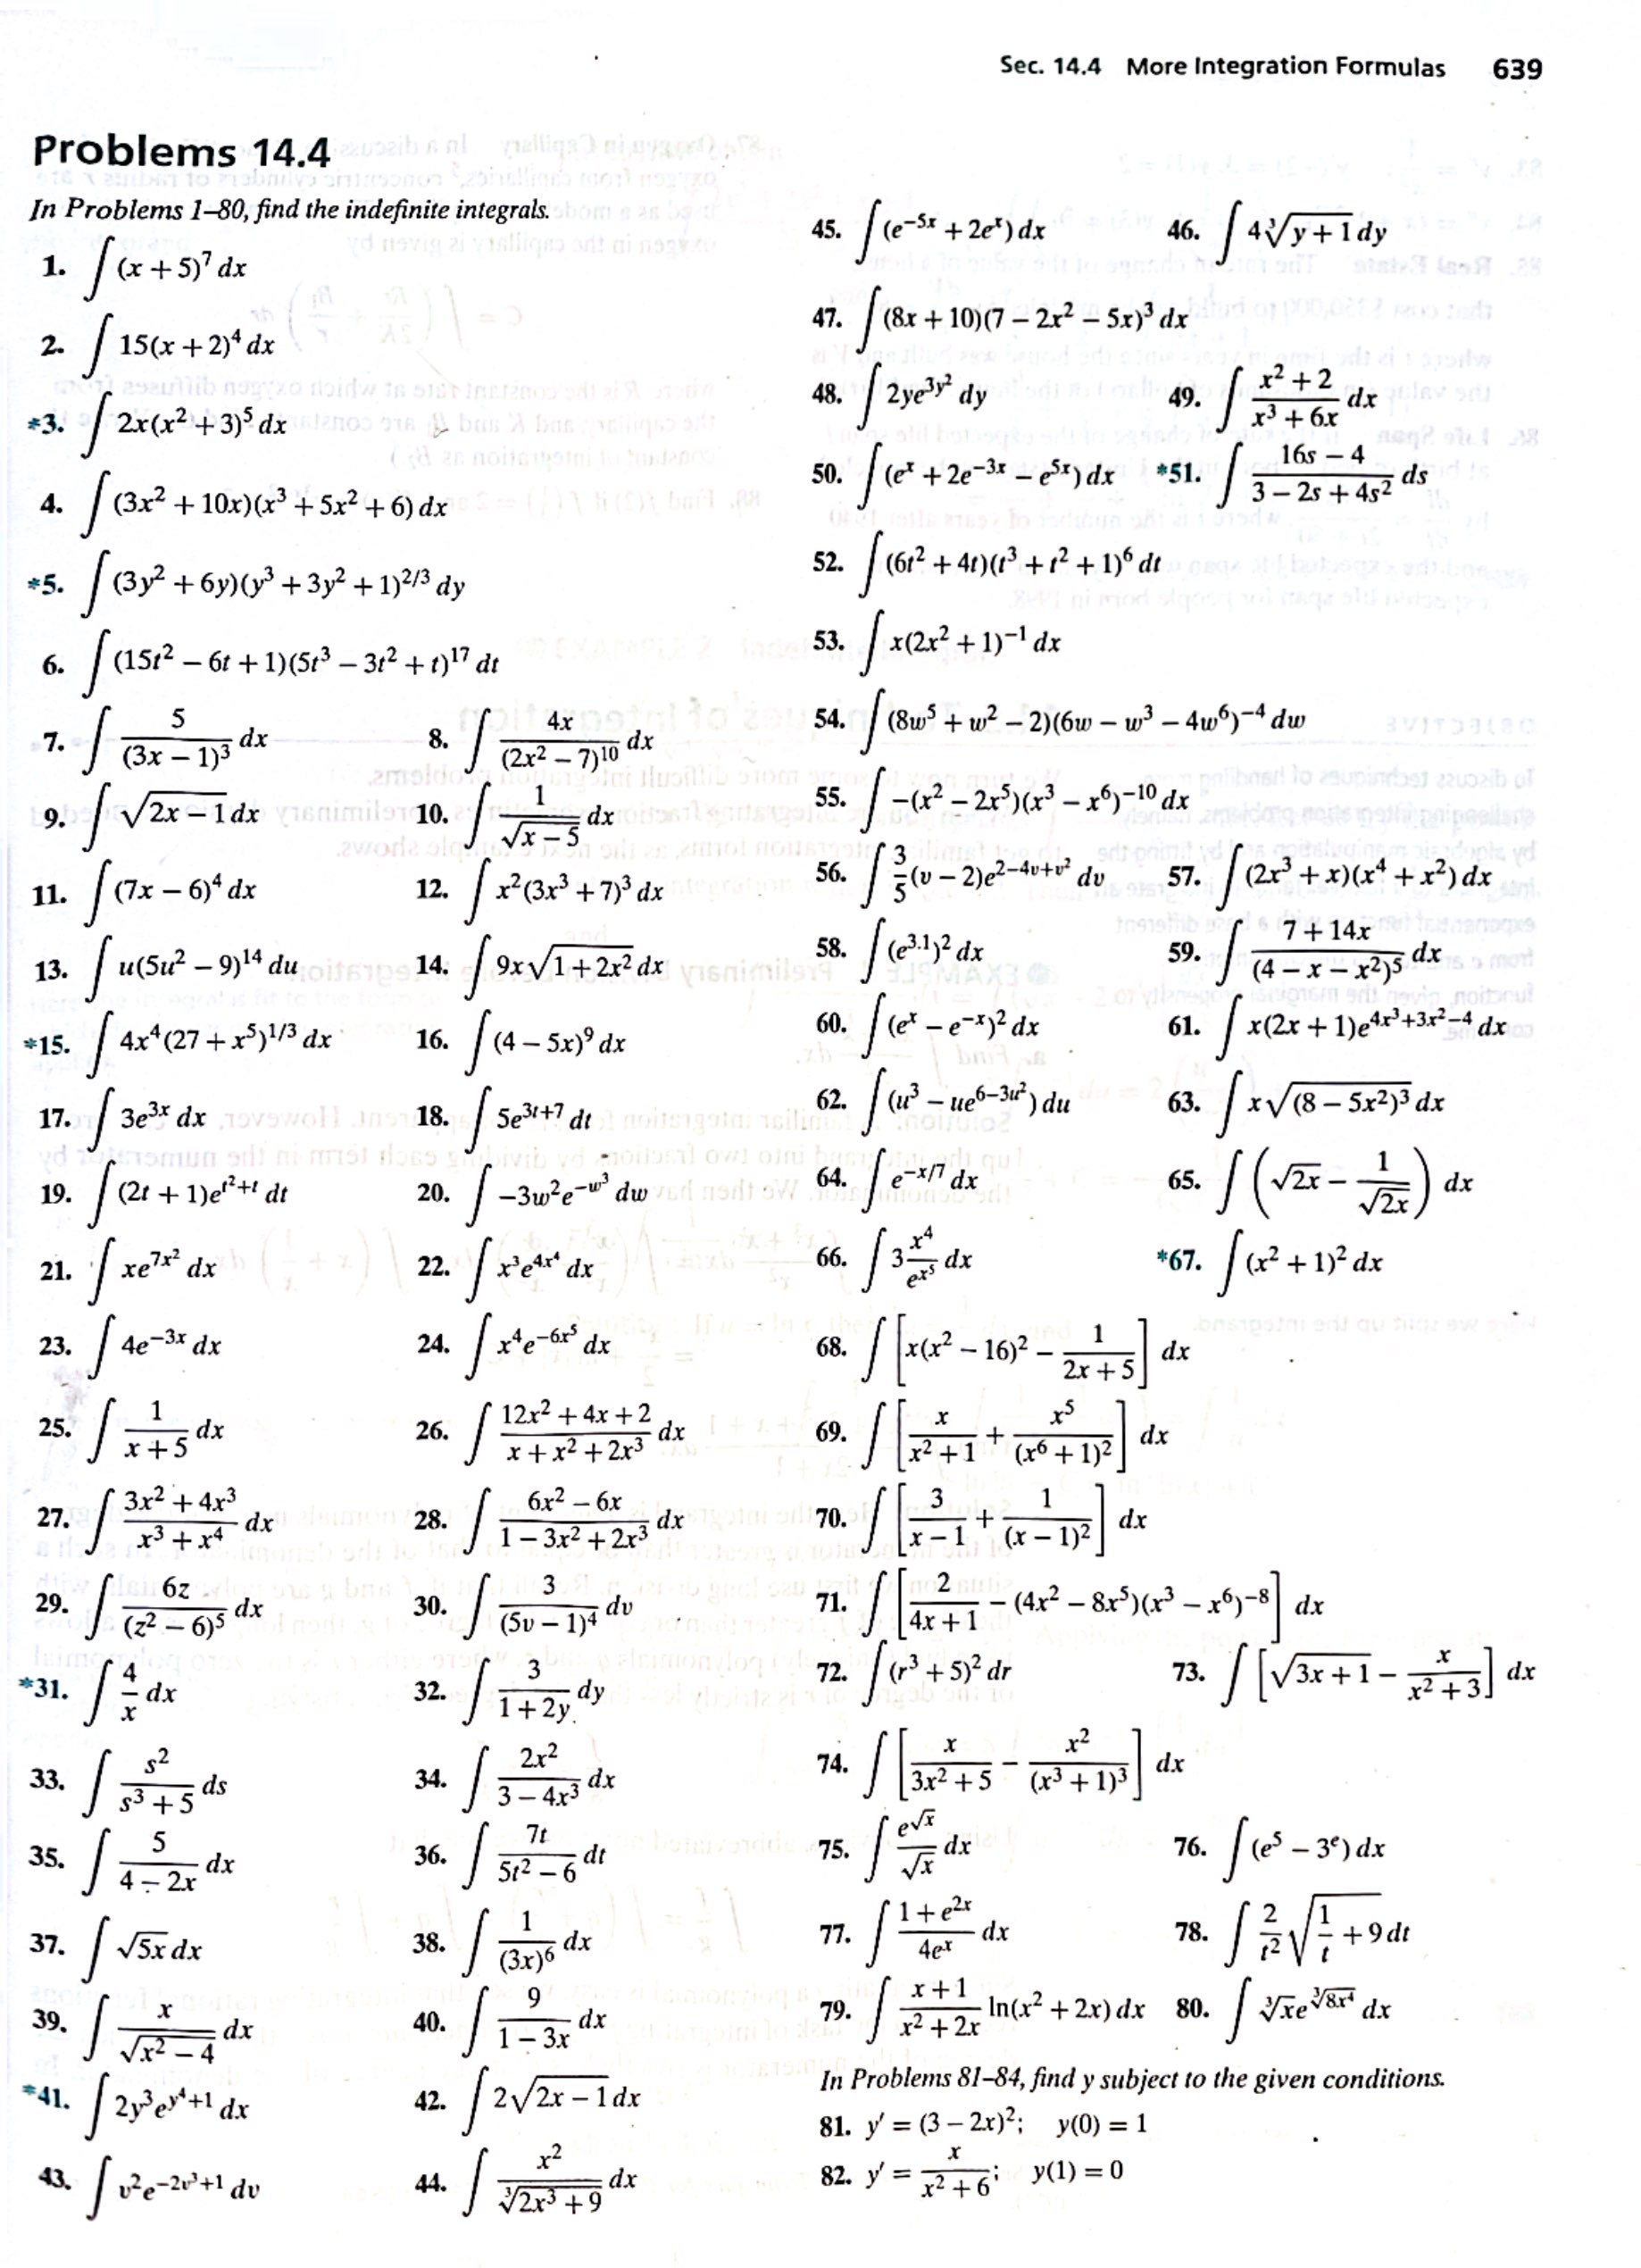 Sec. 14.4 More Integration Formulas 639
Problems 14.4
In Problems 1–80, find the indefinite integrals.
1. ∫ (x + 5)⁷ dx
2. ∫ 15(x + 2)⁴ dx
*3. ∫ 2x(x² + 3)⁵ dx
4. ∫ (3x² + 10x)(x³ + 5x² + 6) dx
*5. ∫ (3y² + 6y)(y³ + 3y² + 1)^(2/3) dy
6. ∫ (15t² − 6t + 1)(5t³ − 3t² + t)¹⁷ dt
7. ∫ 5/(3x − 1)³ dx 8. ∫ 4x/(2x² − 7)¹⁰ dx
9. ∫ √(2x − 1) dx 10. ∫ 1/√(x − 5) dx
11. ∫ (7x − 6)⁴ dx 12. ∫ x²(3x³ + 7)³ dx
13. ∫ u(5u² − 9)¹⁴ du 14. ∫ 9x√(1 + 2x²) dx
*15. ∫ 4x⁴(27 + x⁵)^(1/3) dx 16. ∫ (4 − 5x)⁹ dx
17. ∫ 3e^(3x) dx 18. ∫ 5e^(3t+7) dt
19. ∫ (2t + 1)e^(t²+t) dt 20. ∫ −3w²e^(−w³) dw
21. ∫ xe^(7x²) dx 22. ∫ x³e^(4x⁴) dx
23. ∫ 4e^(−3x) dx 24. ∫ x⁴e^(−6x⁵) dx
25. ∫ 1/(x + 5) dx 26. ∫ (12x² + 4x + 2)/(x + x² + 2x³) dx
27. ∫ (3x² + 4x³)/(x³ + x⁴) dx 28. ∫ (6x² − 6x)/(1 − 3x² + 2x³) dx
29. ∫ 6z/(z² − 6)⁵ dx 30. ∫ 3/(5v − 1)⁴ dv
*31. ∫ 4/x dx 32. ∫ 3/(1 + 2y) dy
33. ∫ s²/(s³ + 5) ds 34. ∫ 2x²/(3 − 4x³) dx
35. ∫ 5/(4 − 2x) dx 36. ∫ 7t/(5t² − 6) dt
37. ∫ √(5x) dx 38. ∫ 1/(3x)⁶ dx
39. ∫ x/√(x² − 4) dx 40. ∫ 9/(1 − 3x) dx
*41. ∫ 2y³e^(y⁴+1) dx 42. ∫ 2√(2x − 1) dx
43. ∫ v²e^(−2v³+1) dv 44. ∫ x²/∛(2x³ + 9) dx
45. ∫ (e^(−5x) + 2e^x) dx 46. ∫ 4∛(y + 1) dy
47. ∫ (8x + 10)(7 − 2x² − 5x)³ dx
48. ∫ 2ye^(3y²) dy 49. ∫ (x² + 2)/(x³ + 6x) dx
50. ∫ (e^x + 2e^(−3x) − e^(5x)) dx *51. ∫ (16s − 4)/(3 − 2s + 4s²) ds
52. ∫ (6t² + 4t)(t³ + t² + 1)⁶ dt
53. ∫ x(2x² + 1)⁻¹ dx
54. ∫ (8w⁵ + w² − 2)(6w − w³ − 4w⁶)⁻⁴ dw
55. ∫ −(x² − 2x⁵)(x³ − x⁶)⁻¹⁰ dx
56. ∫ 3/5(v − 2)e^(2−4v+v²) dv 57. ∫ (2x³ + x)(x⁴ + x²) dx
58. ∫ (e^(3.1))² dx 59. ∫ (7 + 14x)/(4 − x − x²)⁵ dx
60. ∫ (e^x − e^(−x))² dx 61. ∫ x(2x + 1)e^(4x³+3x²−4) dx
62. ∫ (u³ − ue^(6−3u²)) du 63. ∫ x√((8 − 5x²)³) dx
64. ∫ e^(−x/7) dx 65. ∫ (√(2x) − 1/√(2x)) dx
66. ∫ 3 x⁴/e^(x⁵) dx *67. ∫ (x² + 1)² dx
68. ∫ [x(x² − 16)² − 1/(2x + 5)] dx
69. ∫ [x/(x² + 1) + x⁵/(x⁶ + 1)²] dx
70. ∫ [3/(x − 1) + 1/(x − 1)²] dx
71. ∫ [2/(4x + 1) − (4x² − 8x⁵)(x³ − x⁶)⁻⁸] dx
72. ∫ (r³ + 5)² dr 73. ∫ [√(3x + 1) − x/(x² + 3)] dx
74. ∫ [x/(3x² + 5) − x²/(x³ + 1)³] dx
75. ∫ e^(√x)/√x dx 76. ∫ (e⁵ − 3^e) dx
77. ∫ (1 + e^(2x))/(4e^x) dx 78. ∫ 2/t² √(1/t + 9) dt
79. ∫ (x + 1)/(x² + 2x) ln(x² + 2x) dx 80. ∫ ∛x e^(∛(8x⁴)) dx
In Problems 81–84, find y subject to the given conditions.
81. y′ = (3 − 2x)²; y(0) = 1
82. y′ = x/(x² + 6); y(1) = 0